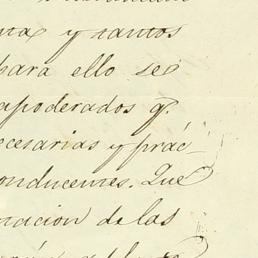 y tantos
para ello se
apoderados q.
ecesarias y prác-
onducentes. Que
nacion de las